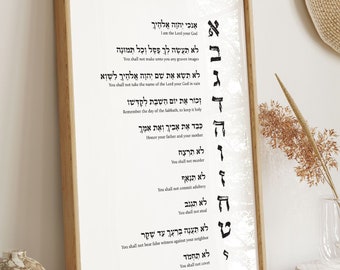 א אנכי יהוה אלהיך
I am the Lord your God
ב לא תעשה לך פסל וכל תמונה
You shall not make unto you any graven images
ג לא תשא את שם יהוה אלהיך לשוא
You shall not take the name of the Lord your God in vain
ד זכור את יום השבת לקדשו
Remember the day of the Sabbath, to keep it holy
ה כבד את אביך ואת אמך
Honor your father and your mother
ו לא תרצח
You shall not murder
ז לא תנאף
You shall not commit adultery
ח לא תגנב
You shall not steal
ט לא תענה ברעך עד שקר
You shall not bear false witness against your neighbor
י לא תחמד
You shall not covet